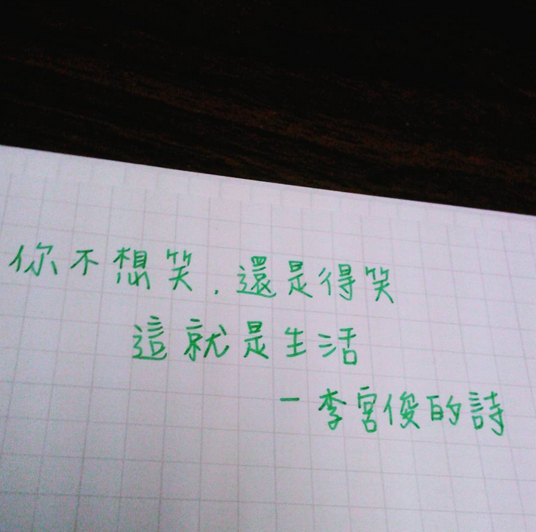 你不想笑，還是得笑
這就是生活
—李宮俊的詩